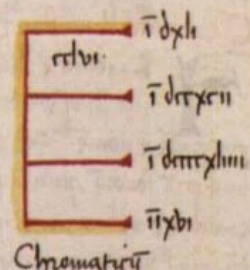 ī dxli
cclvi·
ī dccxcii
ī dccccxliiii
īīxlvi
Chromaticū